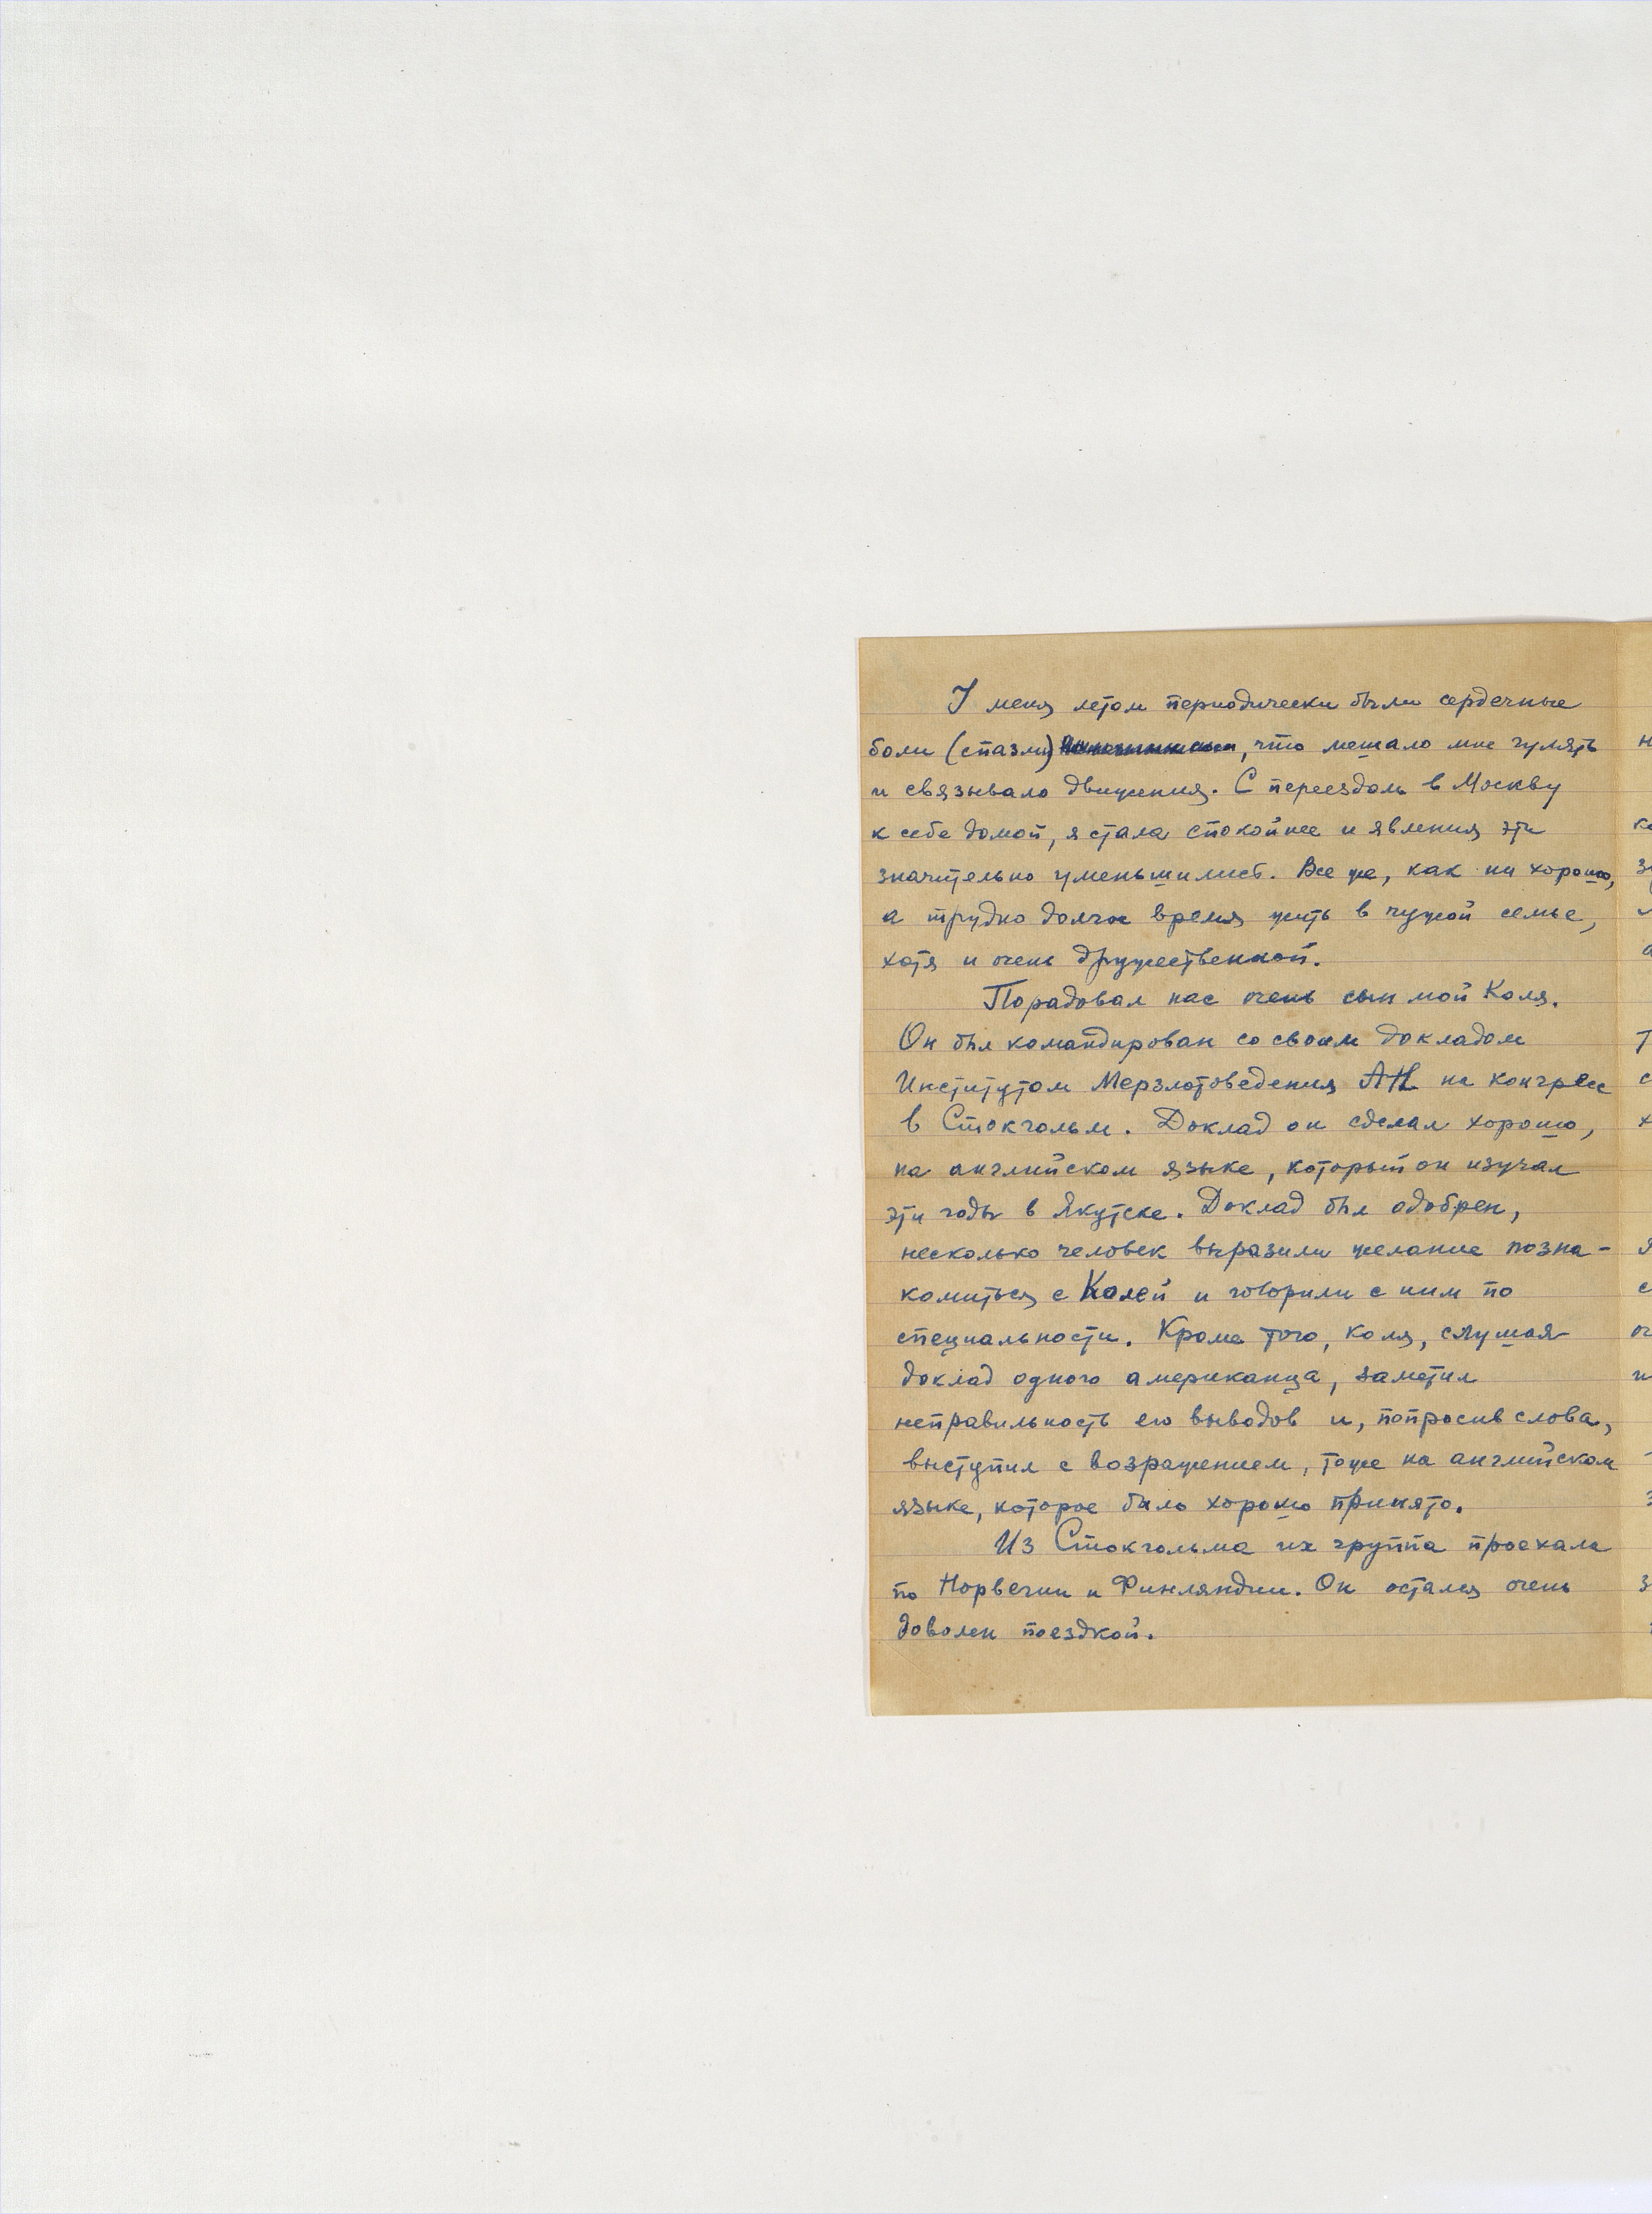 У меня летом периодически были сердечные
боли (спазмы), что мешало мне гулять
и связывало движения. С переездом в Москву
к себе домой, я стала спокойнее и явления эти
значительно уменьшились. Все же, как ни хорошо,
а трудно долгое время жить в чужой семье,
хотя и очень дружественной.
Порадовал нас очень сын мой Коля.
Он был командирован со своим докладом
Институтом Мерзлотоведения АН на конгресс
в Стокгольм. Доклад он сделал хорошо,
на английском языке, который он изучал
эти годы в Якутске. Доклад был одобрен,
несколько человек выразили желание позна-
комиться с Колей и говорили с ним по
специальности. Кроме того, Коля, слушая
доклад одного американца, заметил
неправильность его выводов и, попросив слова,
выступил с возражением, тоже на английском
языке, которое было хорошо принято.
Из Стокгольма их группа проехала
по Норвегии и Финляндии. Он остался очень
доволен поездкой.